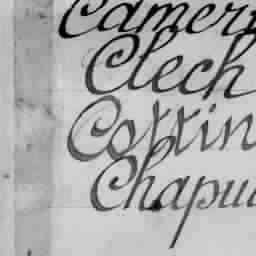 Camer
Clech
Cottin
Chapu